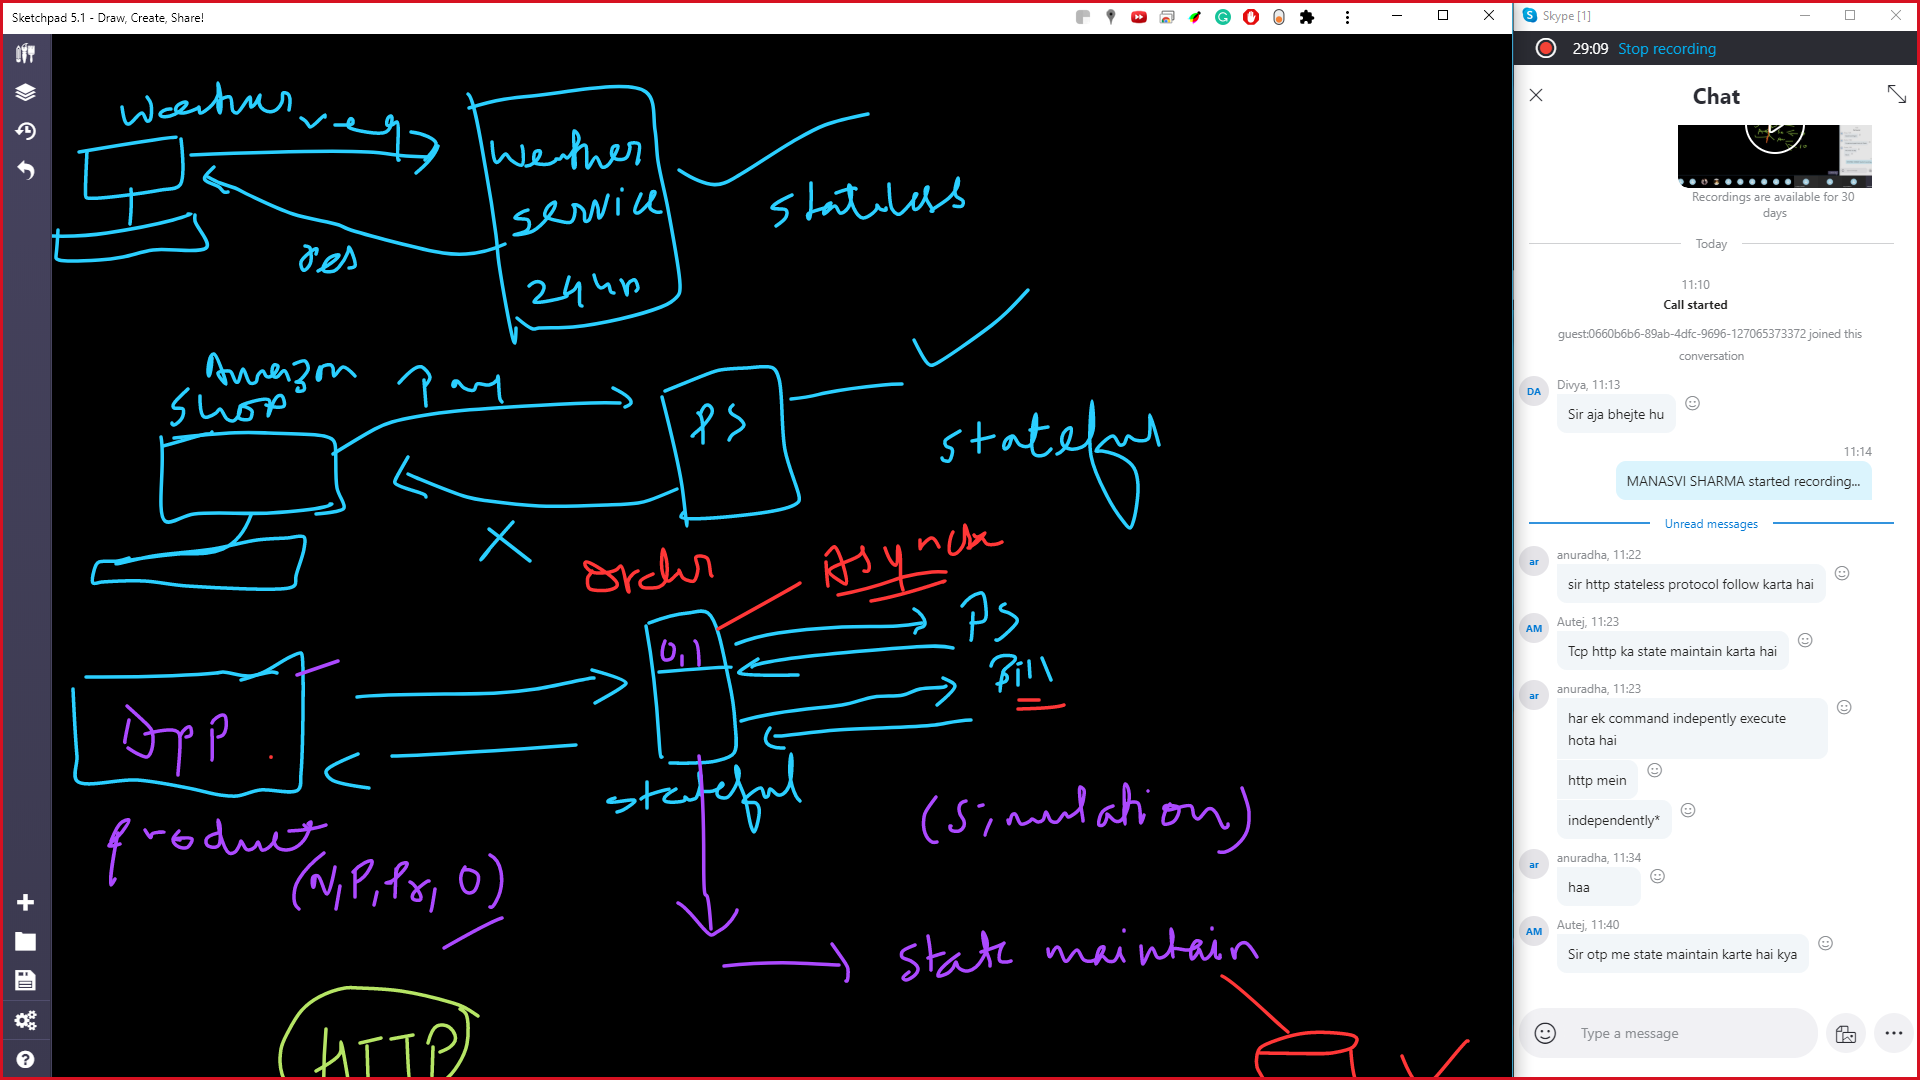 Sketchpad 5.1 - Draw, Create, Share!
Weather
req
Weather
service
24 hn
res
stateless
Amazon
Shop
Pay
PS
stateful
X
Order
Async
0,1
PS
Bill
DPP
stateful
product
(N, P, Pr, O)
(Simulation)
state maintain
HTTP
Skype [1]
29:09 Stop recording
Chat
Recordings are available for 30
days
Today
11:10
Call started
guest:0660b6b6-89ab-4dfc-9696-127065373372 joined this
conversation
Divya, 11:13
DA
Sir aja bhejte hu
11:14
MANASVI SHARMA started recording...
Unread messages
anuradha, 11:22
ar
sir http stateless protocol follow karta hai
Autej, 11:23
AM
Tcp http ka state maintain karta hai
anuradha, 11:23
ar
har ek command indepently execute
hota hai
http mein
independently*
anuradha, 11:34
ar
haa
Autej, 11:40
AM
Sir otp me state maintain karte hai kya
Type a message